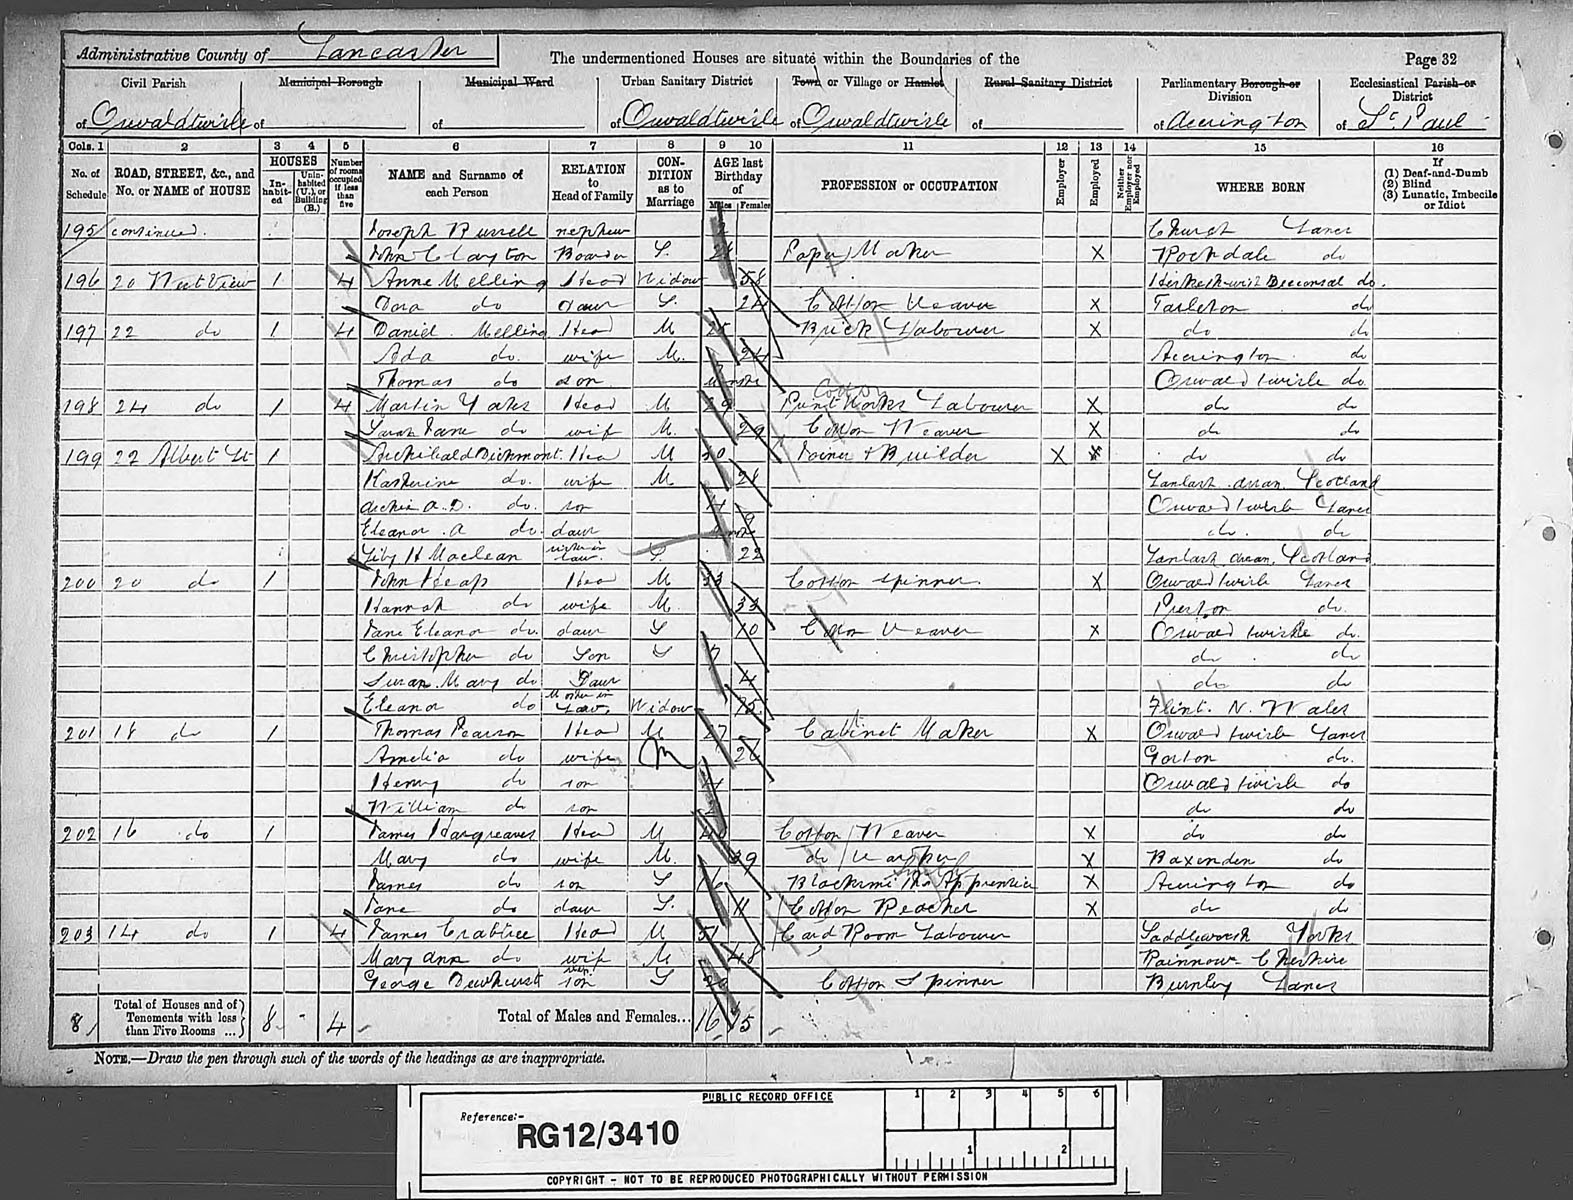 Administrative County of Lancaster
The undermentioned Houses are situate within the Boundaries of the
Page 32
Civil Parish Municipal Borough Municipal Ward Urban Sanitary District Town or Village or Hamlet Rural Sanitary District Parliamentary Borough or Division Ecclesiastical Parish or District
of Oswaldtwisle of of of Oswaldtwisle of Oswaldtwisle of of Accrington of St. Paul
Cols. 1 2 3 4 5 6 7 8 9 10 11 12 13 14 15 16
No. of Schedule ROAD, STREET, &c., and No. or NAME of HOUSE HOUSES Inhabited Uninhabited (U.), or Building (B.) Number of rooms occupied if less than five NAME and Surname of each Person RELATION to Head of Family CONDITION as to Marriage AGE last Birthday of Males Females PROFESSION or OCCUPATION Employer Employed Neither Employer nor Employed WHERE BORN If (1) Deaf-and-Dumb (2) Blind (3) Lunatic, Imbecile or Idiot
195 continued. Joseph Russell nephew Church Lancs
John Clayton Boarder S. Paper Maker X Rochdale do
196 20 West View 1 4 Anne Melling Head Widow 58 do.
Dora do daur S. 24 Cotton Weaver X Tarleton do
197 22 do 1 4 Daniel Melling Head M 25 Brick Labourer X do do
Ada do. wife M. 24 Accrington do
Thomas do son Oswaldtwisle do
198 24 do 1 4 Martin Yates Head M 29 Cotton Print Works Labourer X do do
Sarah Jane do wife M. 29 Cotton Weaver X do do
199 22 Albert St 1 Archibald Dickmont Head M 30 Joiner & Builder X X do do
Katherine do. wife M 28 Lamlash Arran, Scotland
Archie A. D. do. son 4 Oswaldtwisle Lancs
Eleanor A do. daur do. do
Lily H Maclean sister in law S 22 Lamlash Arran, Scotland
200 20 do 1 John Heap Head M 33 Cotton Spinner X Oswaldtwisle Lancs
Hannah do wife M. 33 Preston do.
Jane Eleanor do. daur S 10 Cotton Weaver X Oswaldtwisle do.
Christopher do Son S 7 do do
Susan Mary do Daur 4 do do
Eleanor do Mother in Law. Widow 75 Flint. N. Wales
201 18 do 1 Thomas Pearson Head M 27 Cabinet Maker X Oswaldtwisle Lancs
Amelia do wife M 26 Gorton do.
Henry do son 4 Oswaldtwisle do
William do son do do
202 16 do 1 James Hargreaves Head M 40 Cotton Weaver X do do
Mary do wife M. 39 do Warper X Baxenden do
James do son S 16 Blacksmiths Apprentice X Accrington do
Jane do daur S. 11 Cotton Reacher X do do
203 14 do 1 4 James Crabtree Head M 51 Card Room Labourer Saddleworth Yorks
Mary Ann do wife M 48 Rainnow Cheshire
George Dewhurst step son S 20 Cotton Spinner Burnley Lancs
8 Total of Houses and of Tenements with less than Five Rooms ... 8 - 4 Total of Males and Females... 16 15
NOTE.—Draw the pen through such of the words of the headings as are inappropriate.
PUBLIC RECORD OFFICE
1 2 3 4 5 6
Reference:-
RG12/3410
1 2
COPYRIGHT - NOT TO BE REPRODUCED PHOTOGRAPHICALLY WITHOUT PERMISSION